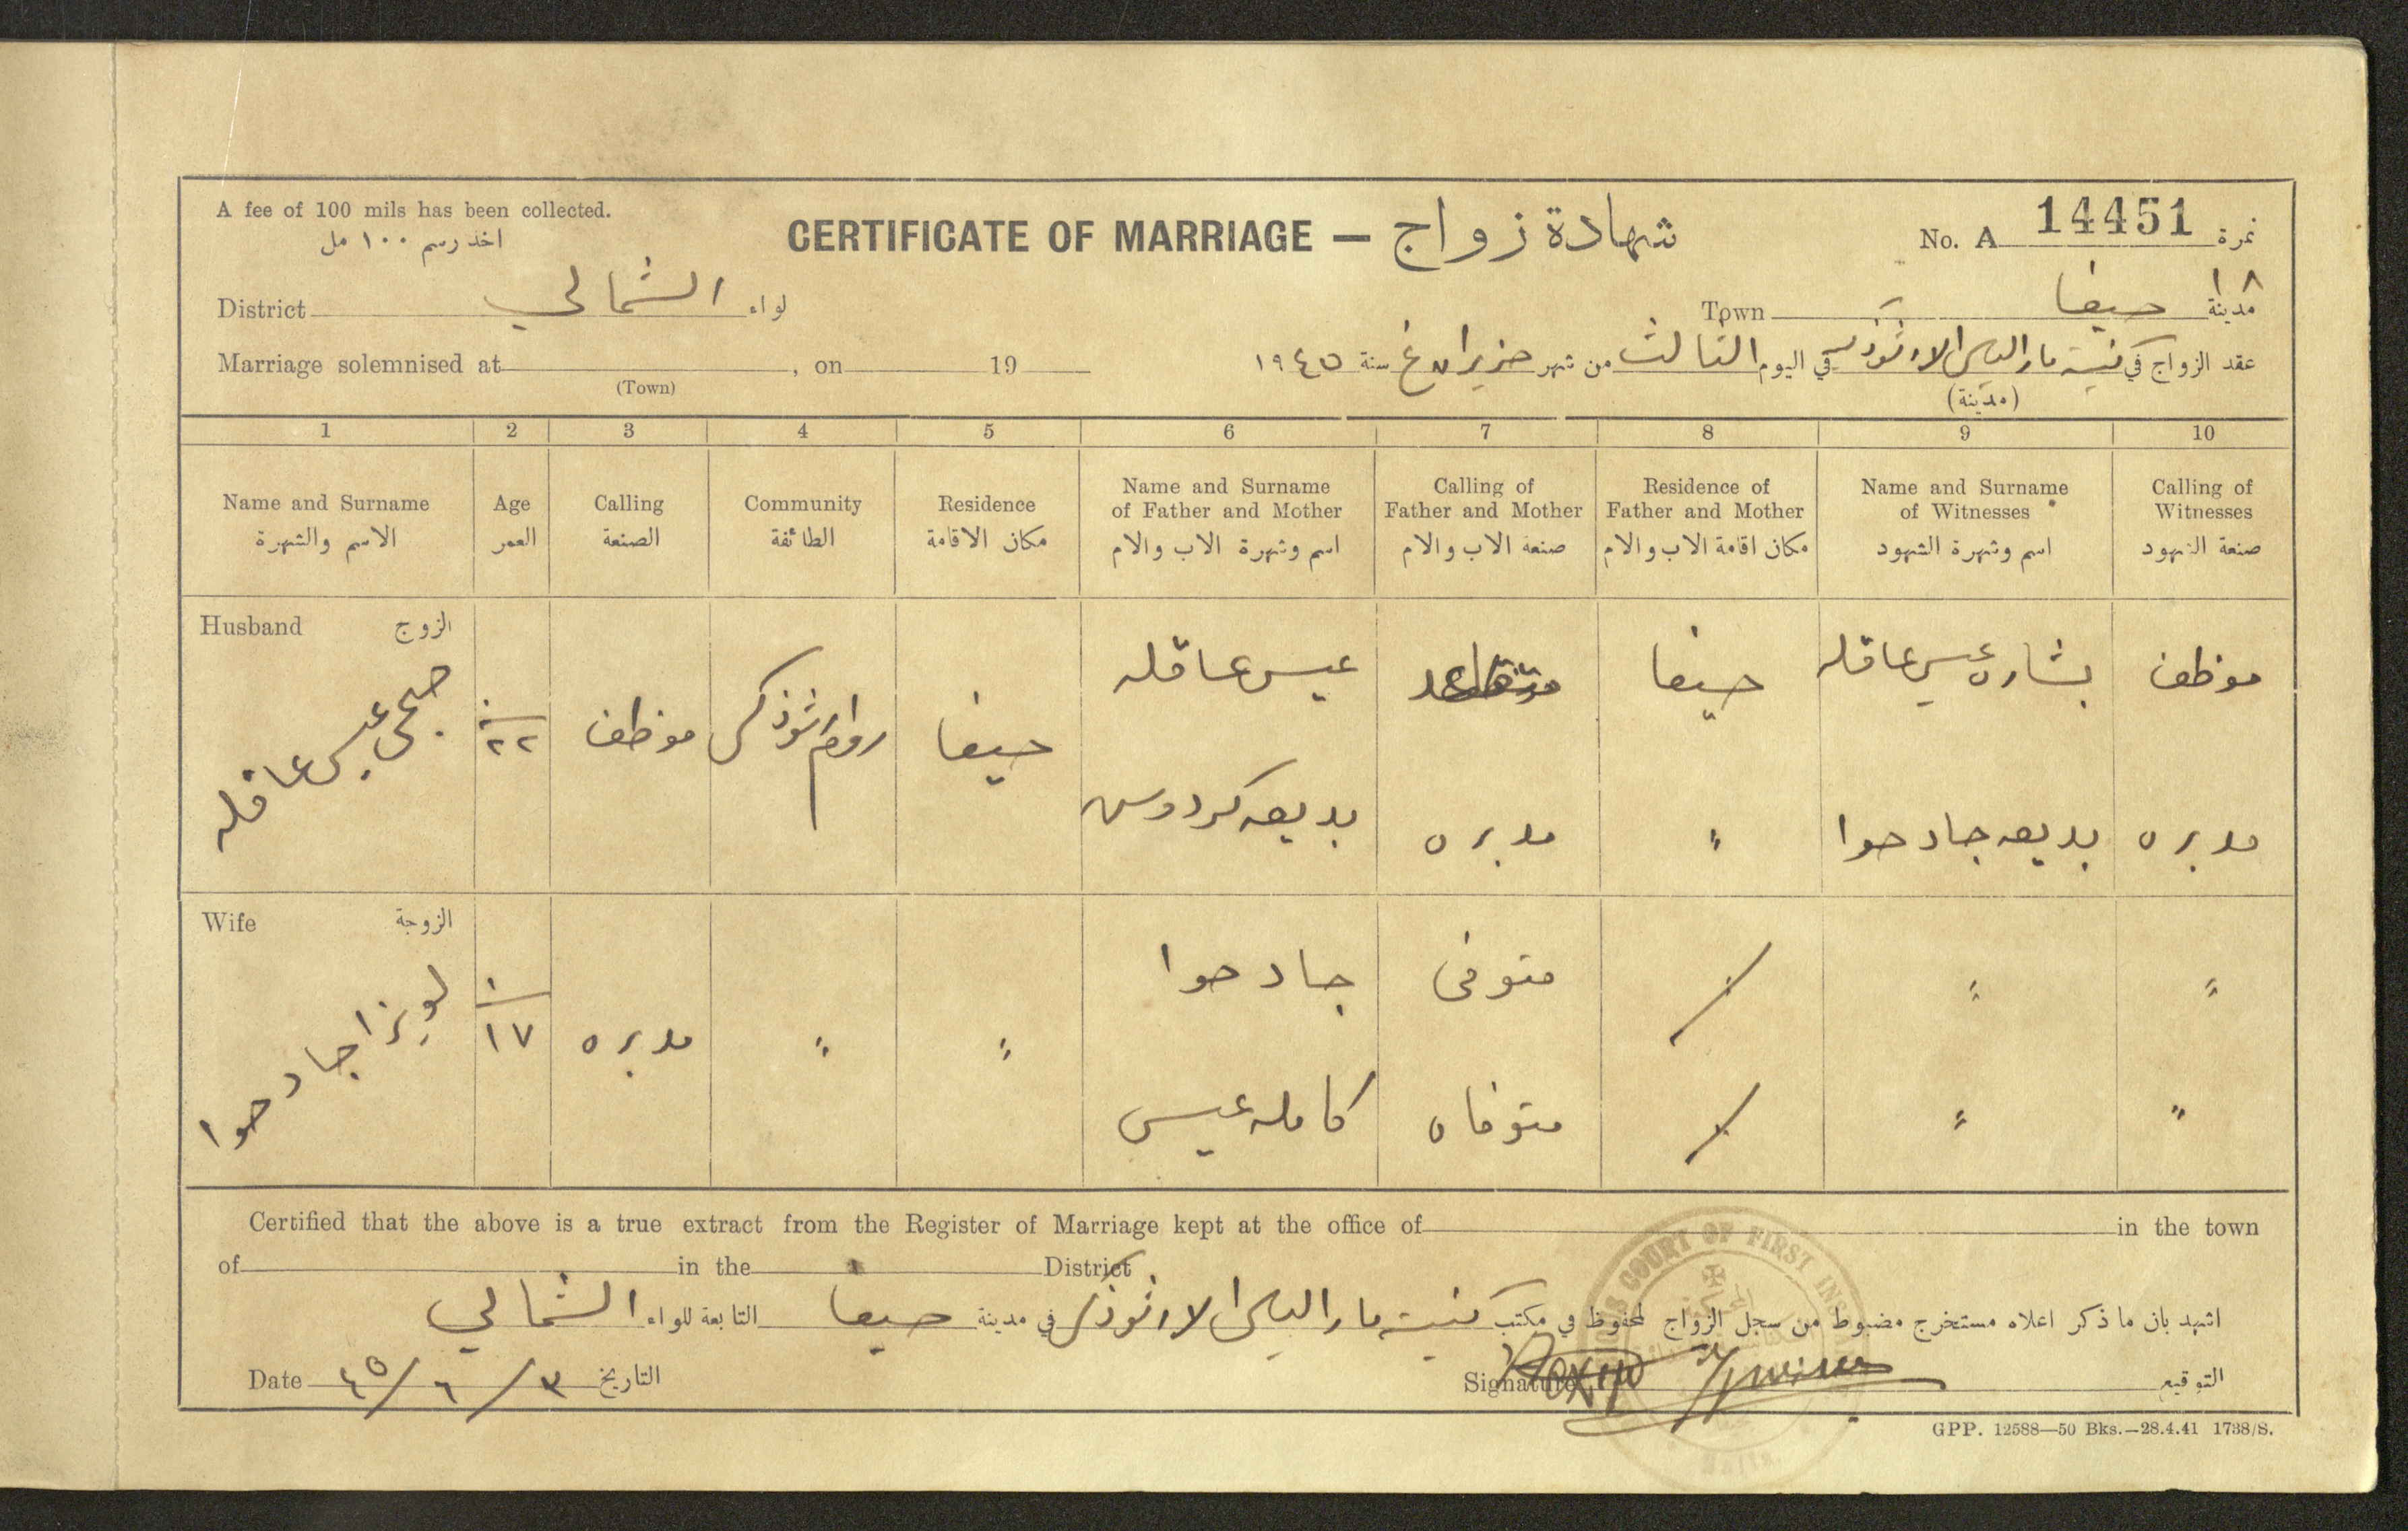 A fee of 100 mils has been collected.
اخذ رسم ١٠٠ مل
CERTIFICATE OF MARRIAGE — شهادة زواج
No. A 14451 نمرة
١٨
District الشمالي لواء
Town حيفا مدينة
Marriage solemnised at , on 19
(Town)
عقد الزواج في كنيسة مار الياس الارثوذكس في اليوم الثالث من شهر حزيران غ سنة ١٩٤٥
(مدينة)
1 2 3 4 5 6 7 8 9 10
Name and Surname
الاسم والشهرة
Age
العمر
Calling
الصنعة
Community
الطائفة
Residence
مكان الاقامة
Name and Surname
of Father and Mother
اسم وشهرة الاب والام
Calling of
Father and Mother
صنعة الاب والام
Residence of
Father and Mother
مكان اقامة الاب والام
Name and Surname
of Witnesses
اسم وشهرة الشهود
Calling of
Witnesses
صنعة الشهود
Husband الزوج
صبحي عيسى عاقله
٢٢
موظف
روم ارثوذكس
حيفا
عيسى عاقله
متقاعد
حيفا
بشاره عيسى عاقله
موظف
بديعه كردوس
مدبره
"
بديعه جاد حوا
مدبره
Wife الزوجة
لويزا جاد حوا
١٧
مدبره
"
"
جاد حوا
متوفى
"
"
كامله عيسى
متوفاه
"
"
Certified that the above is a true extract from the Register of Marriage kept at the office of in the town
of in the District
اشهد بان ما ذكر اعلاه مستخرج مضبوط من سجل الزواج المحفوظ في مكتب كنيسة مار الياس الارثوذكس في مدينة حيفا التابعة للواء الشمالي
Date ٣/٦/٤٥ التاريخ
Signature التوقيع
COURT OF FIRST
Haifa
GPP. 12588—50 Bks.—28.4.41 1738/S.